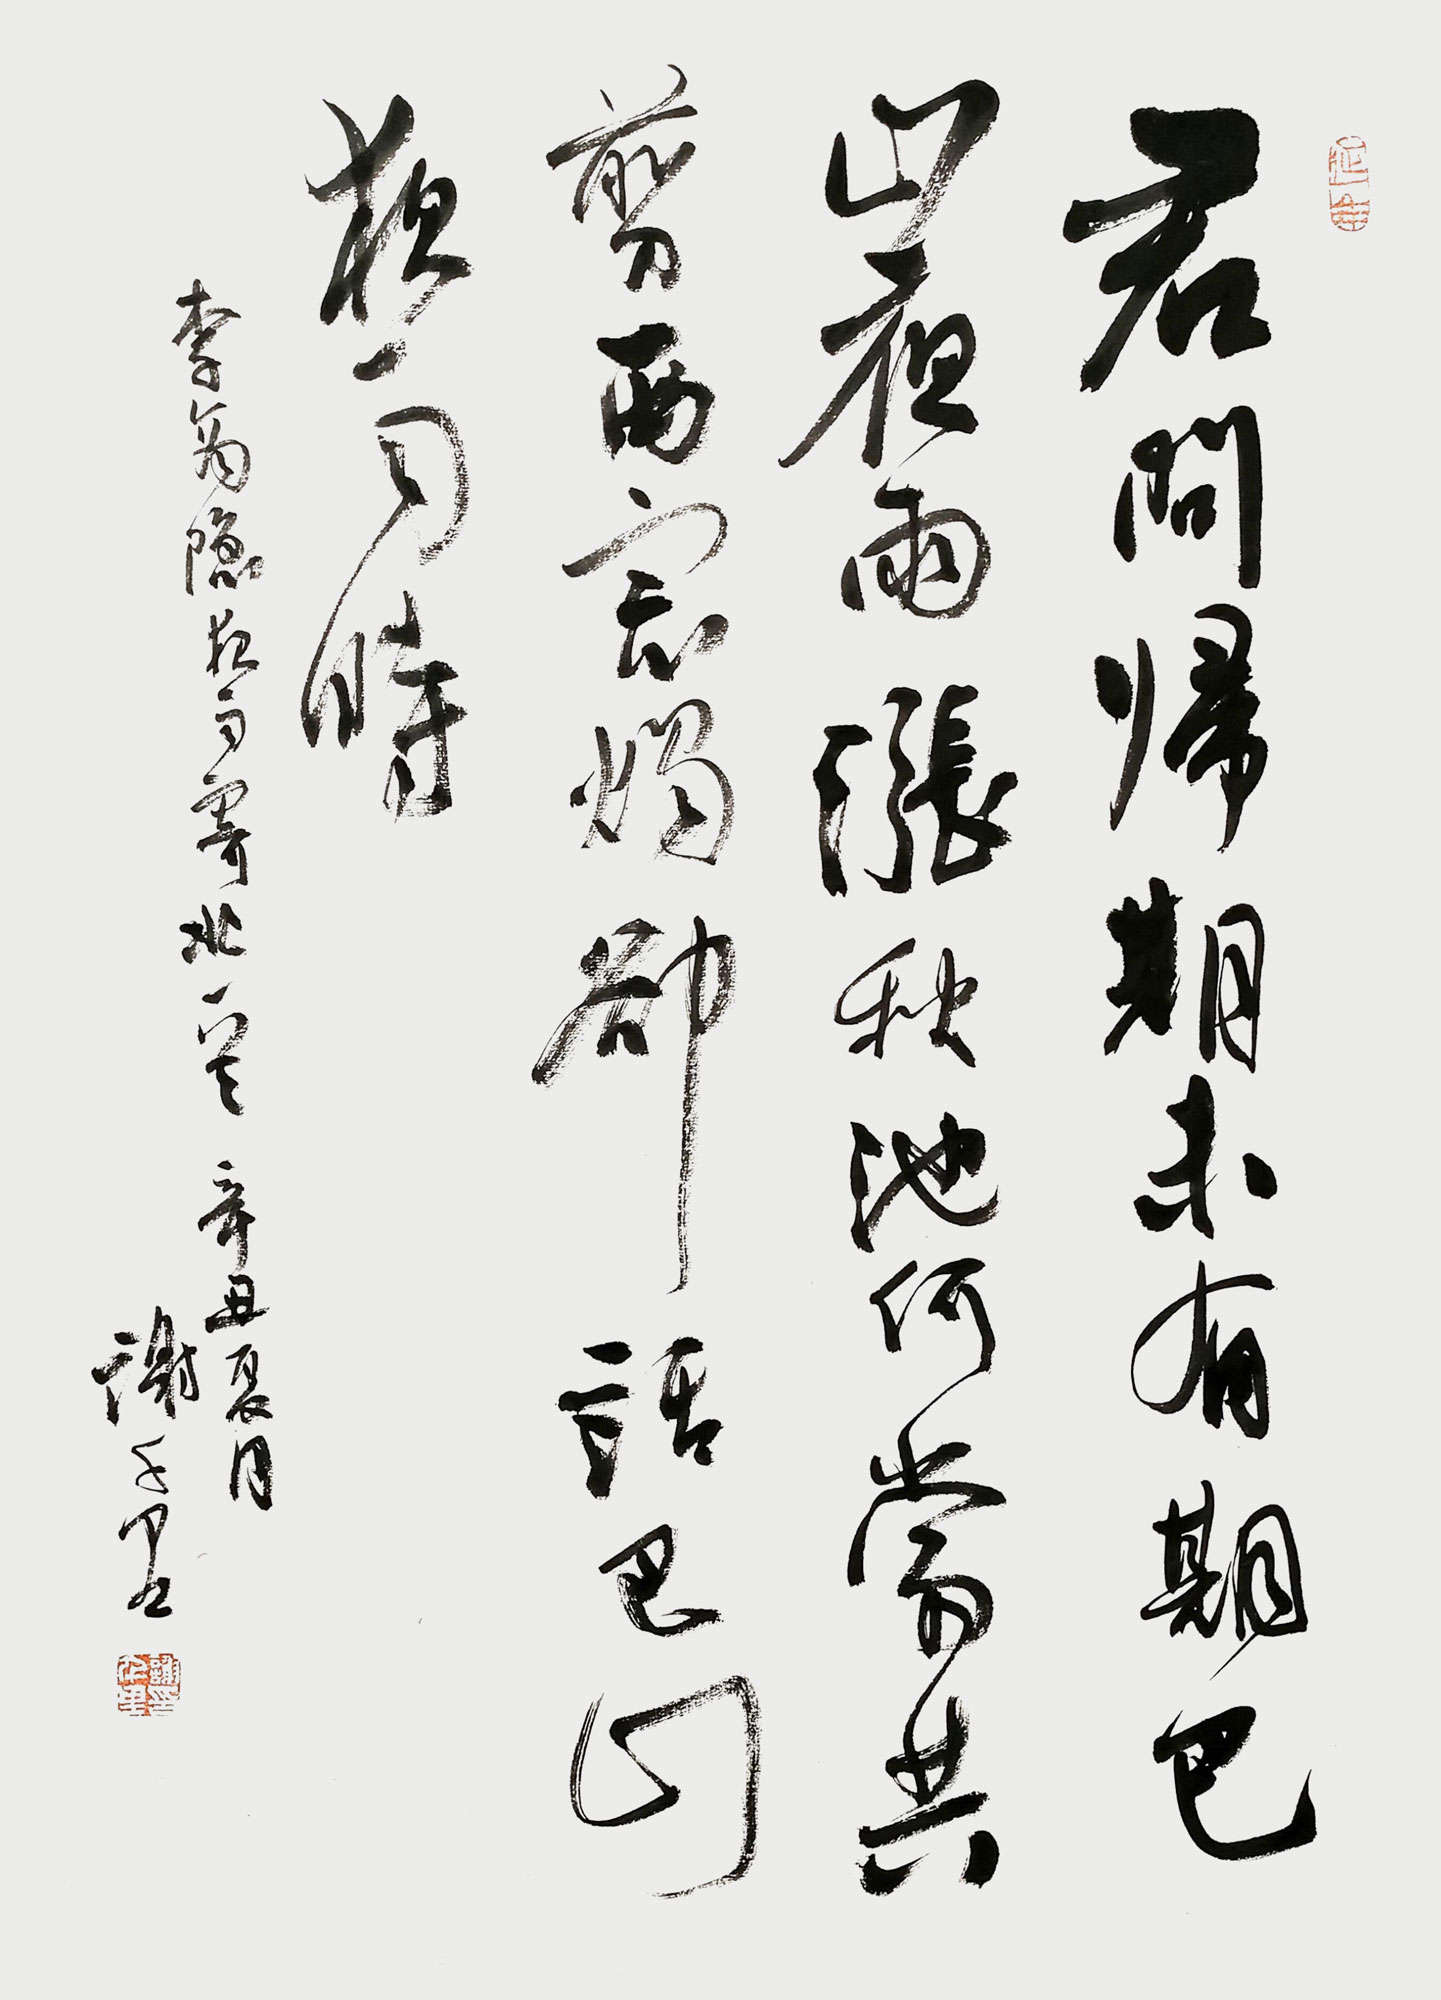 君問帰期未有期巴
山夜雨漲秋池何當共
剪西窓燭卻話巴山
夜雨時
李商隱夜雨寄北一首 辛丑夏月
謝